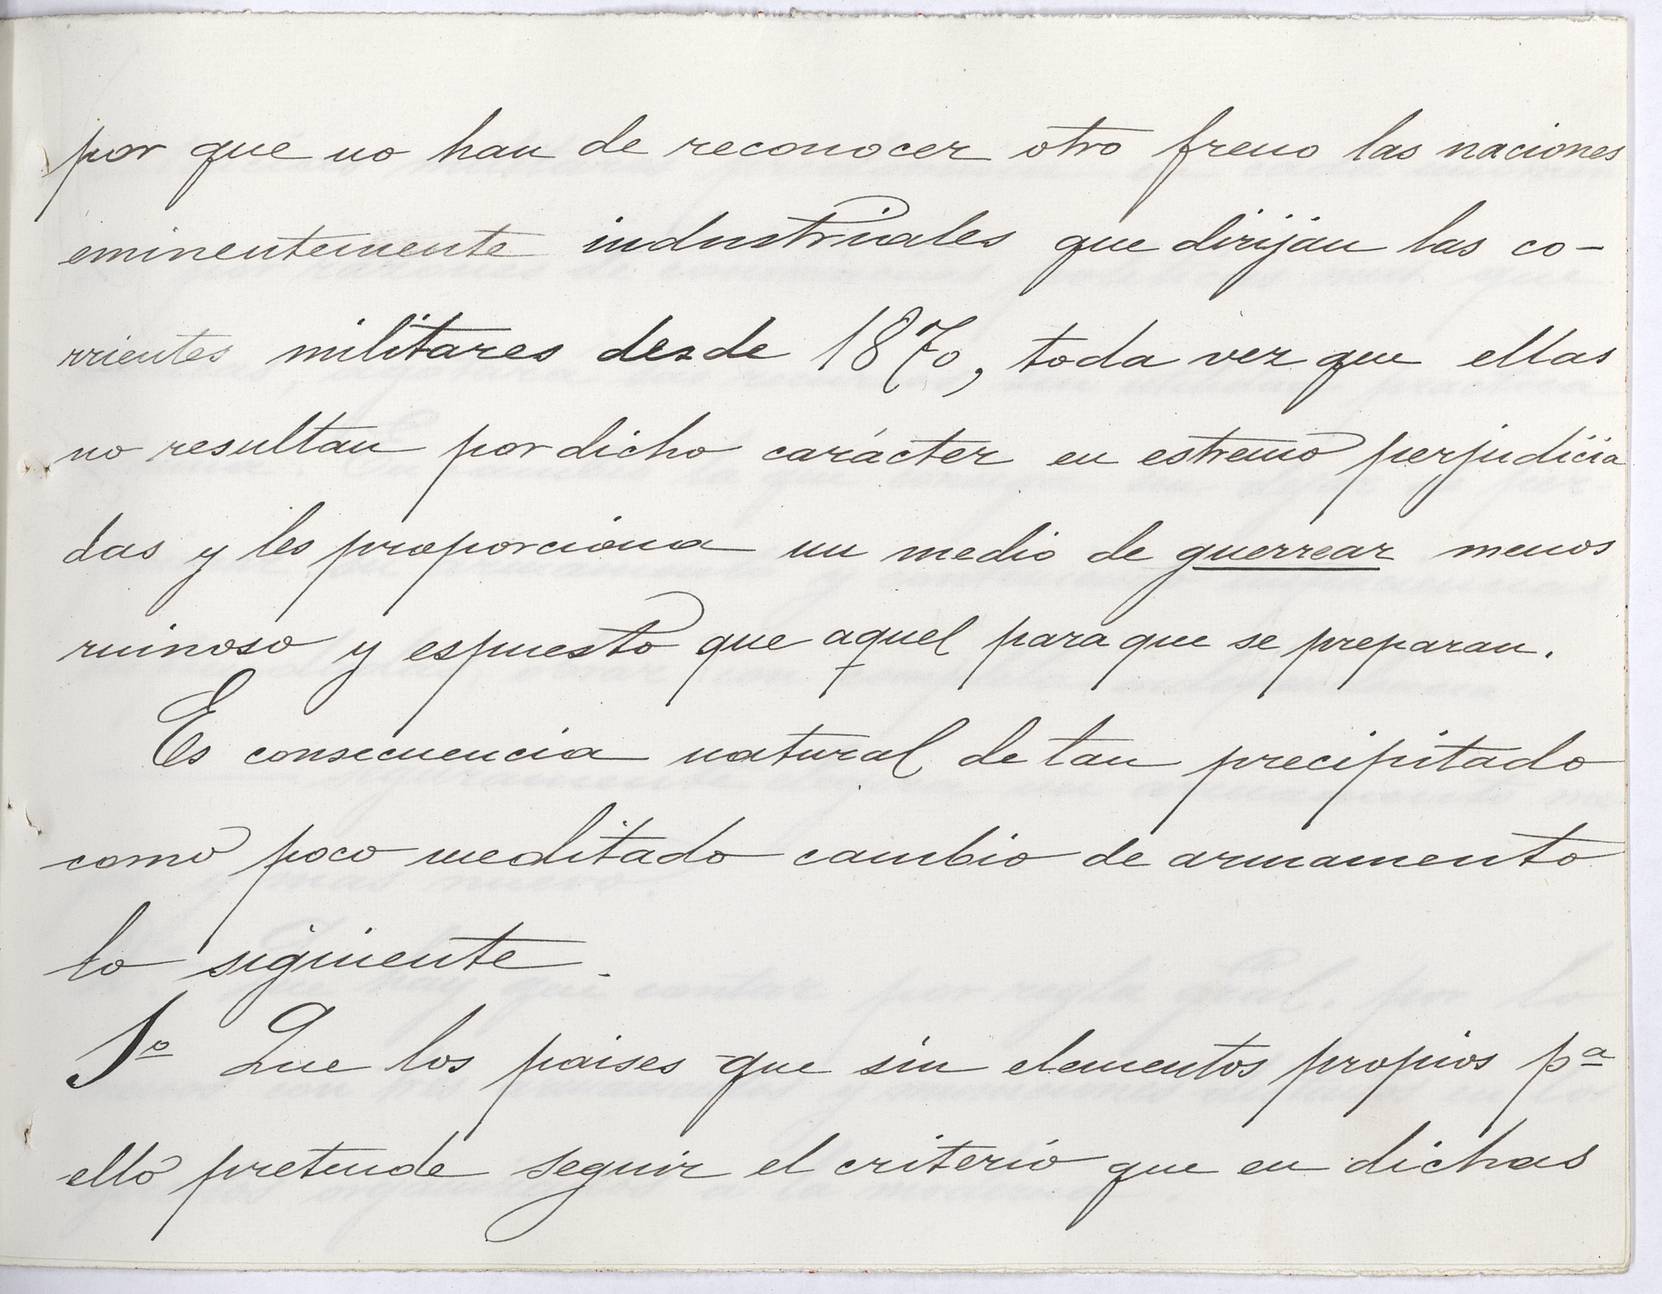 por que no han de reconocer otro freno las naciones
eminentemente industriales que dirijan las co-
rrientes militares desde 1870, toda vez que ellas
no resultan por dicho carácter en estremo perjudicia
das y les proporciona un medio de guerrear menos
ruinoso y espuesto que aquel para que se preparan.
Es consecuencia natural de tan precipitado
como poco meditado cambio de armamento
lo siguiente.
1º Que los paises que sin elementos propios pª
ello pretende seguir el criterio que en dichas